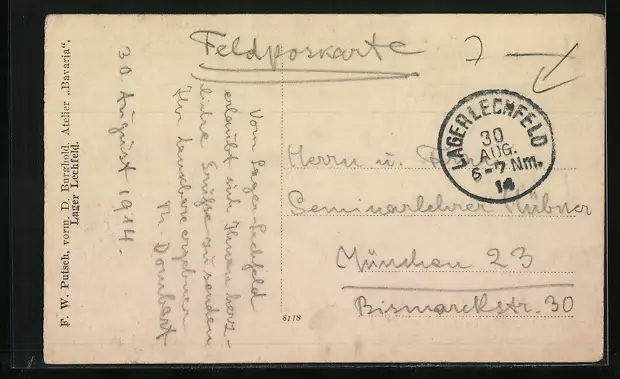 Feldpostkarte
LAGER LECHFELD
30
AUG.
6-7 Nm.
14
Herrn u.
Seminarlehrer Hübner
München 23
Bismarckstr. 30
30. August 1914.
Vom Lager-Lechfeld
erlaubt sich Ihnen herz-
liche Grüße zu senden
Ihr dankbar ergebener
Th. Dombart
F. W. Putsch, vorm. D. Burghold, Atelier „Bavaria“,
Lager Lechfeld.
6118